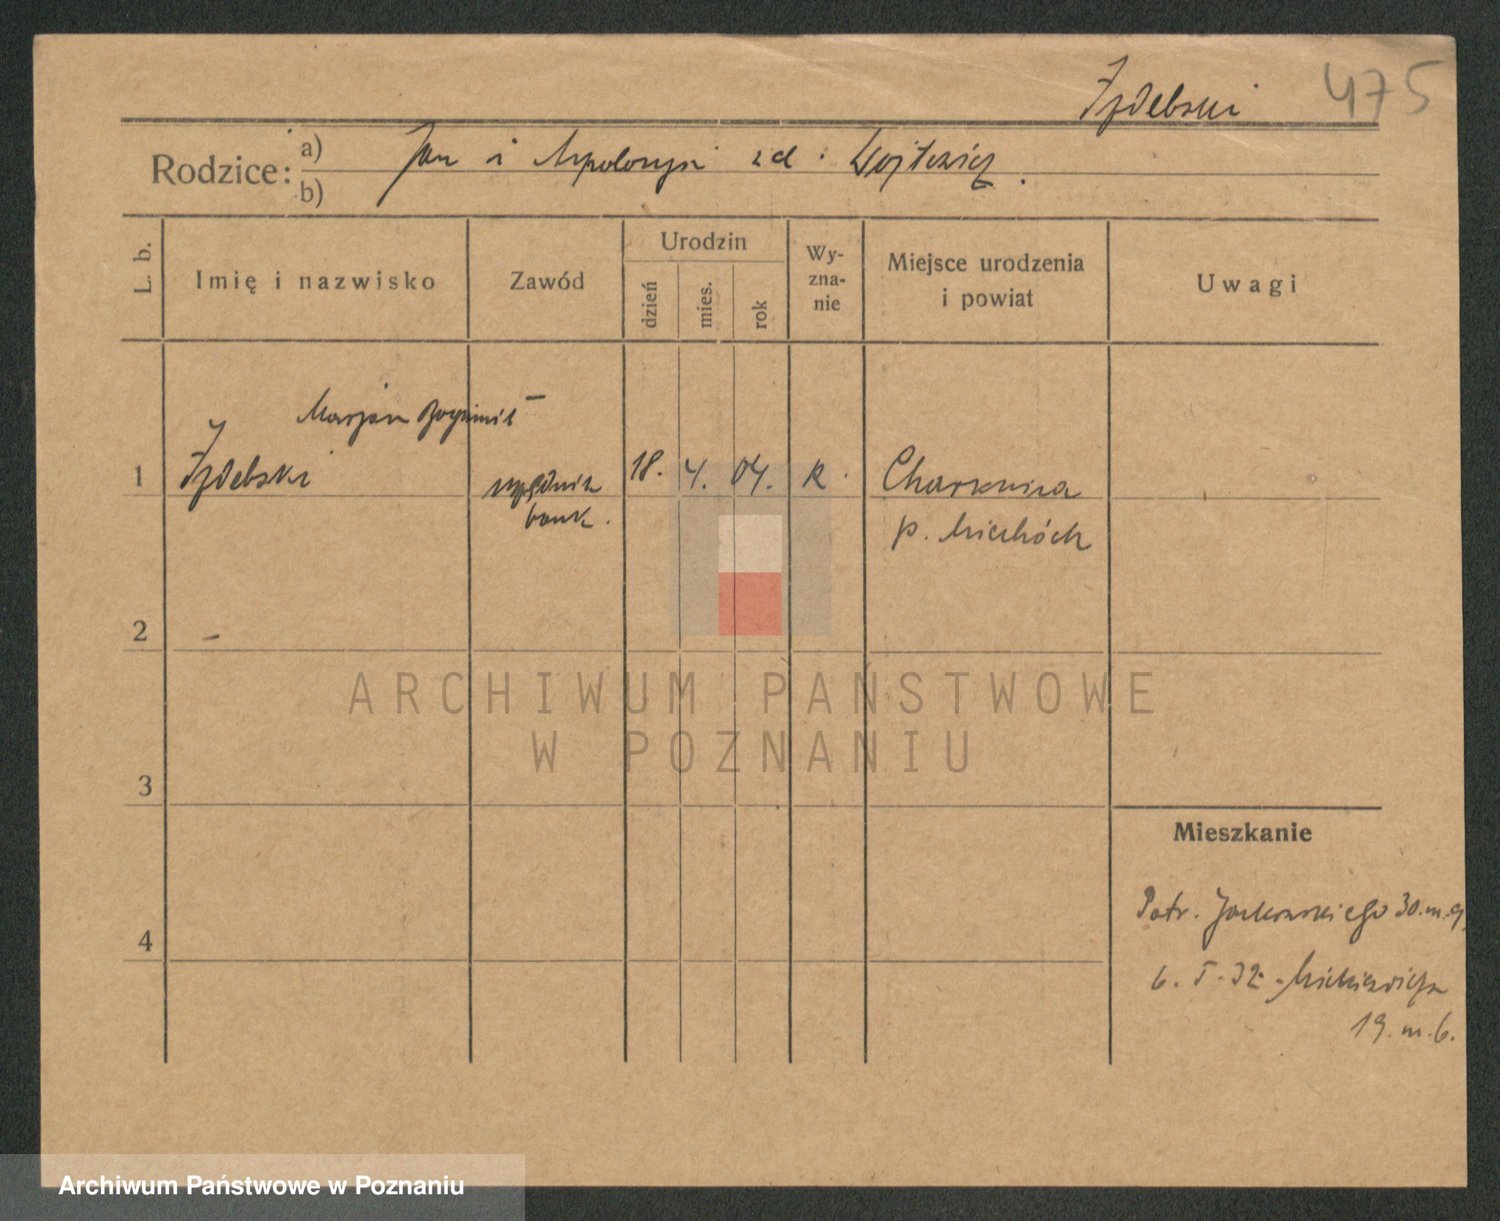 Izdebski 475
Rodzice: a) b) Jan i Apolonja zd. Wojtewicz.
L. b.
Imię i nazwisko
Zawód
Urodzin
dzień
mies.
rok
Wy-
zna-
nie
Miejsce urodzenia
i powiat
Uwagi
Marjan Bogumił
1 Izdebski urzędnik 18. 4. 04. R. Charsznica
bank. p. Miechów
2 –
3
4
Mieszkanie
Patr. Jackowskiego 30. m. 9.
6. I. 32 - Mickiewicza
19. m. 6.
ARCHIWUM PAŃSTWOWE
W POZNANIU
Archiwum Państwowe w Poznaniu